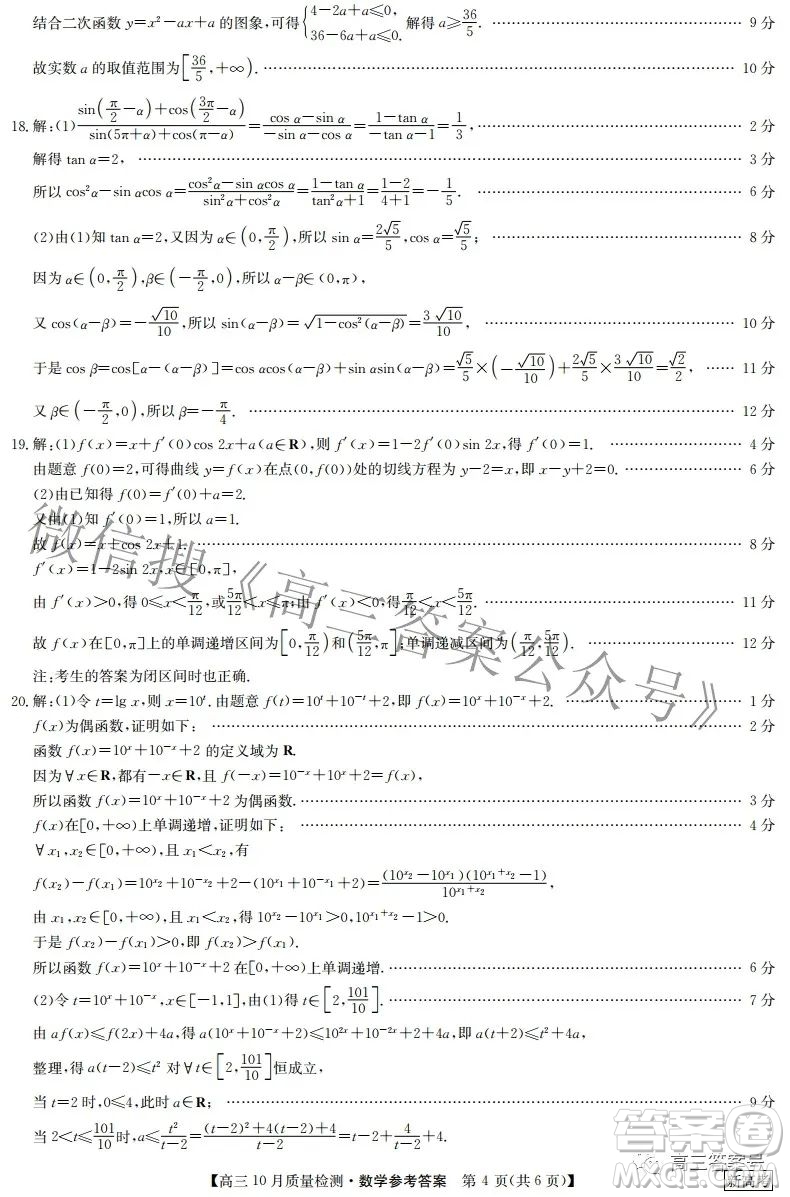 结合二次函数 y=x²-ax+a 的图象,可得{4-2a+a≤0, 36-6a+a≤0. 解得 a≥36/5. …… 9 分
故实数 a 的取值范围为[36/5,+∞). …… 10 分
18.解:(1) (sin(π/2-α)+cos(3π/2-α))/(sin(5π+α)+cos(π-α))=(cos α-sin α)/(-sin α-cos α)=(1-tan α)/(-tan α-1)=1/3, …… 2 分
解得 tan α=2, …… 3 分
所以 cos²α-sin αcos α=(cos²α-sin αcos α)/(sin²α+cos²α)=(1-tan α)/(tan²α+1)=(1-2)/(4+1)=-1/5. …… 6 分
(2)由(1)知 tan α=2,又因为 α∈(0,π/2),所以 sin α=2√5/5,cos α=√5/5; …… 8 分
因为 α∈(0,π/2),β∈(-π/2,0),所以 α-β∈(0,π),
又 cos(α-β)=-√10/10,所以 sin(α-β)=√(1-cos²(α-β))=3√10/10, …… 10 分
于是 cos β=cos[α-(α-β)]=cos αcos(α-β)+sin αsin(α-β)=√5/5×(-√10/10)+2√5/5×3√10/10=√2/2, …… 11 分
又 β∈(-π/2,0),所以 β=-π/4. …… 12 分
19.解:(1)f(x)=x+f′(0)cos 2x+a(a∈R),则 f′(x)=1-2f′(0)sin 2x,得 f′(0)=1. …… 4 分
由题意 f(0)=2,可得曲线 y=f(x)在点(0,f(0))处的切线方程为 y-2=x,即 x-y+2=0. …… 6 分
(2)由已知得 f(0)=f′(0)+a=2.
又由(1)知 f′(0)=1,所以 a=1.
故 f(x)=x+cos 2x+1. …… 8 分
f′(x)=1-2sin 2x,x∈[0,π],
由 f′(x)>0,得 0≤x<π/12,或5π/12<x≤π;由 f′(x)<0,得π/12<x<5π/12. …… 11 分
故 f(x)在[0,π]上的单调递增区间为[0,π/12)和(5π/12,π];单调递减区间为(π/12,5π/12). …… 12 分
注:考生的答案为闭区间时也正确.
20.解:(1)令 t=lg x,则 x=10ᵗ.由题意 f(t)=10ᵗ+10⁻ᵗ+2,即 f(x)=10ˣ+10⁻ˣ+2. …… 1 分
f(x)为偶函数,证明如下: …… 2 分
函数 f(x)=10ˣ+10⁻ˣ+2 的定义域为 R.
因为∀x∈R,都有-x∈R,且 f(-x)=10⁻ˣ+10ˣ+2=f(x),
所以函数 f(x)=10ˣ+10⁻ˣ+2 为偶函数. …… 3 分
f(x)在[0,+∞)上单调递增,证明如下: …… 4 分
∀x₁,x₂∈[0,+∞),且 x₁<x₂,有
f(x₂)-f(x₁)=10^(x₂)+10^(-x₂)+2-(10^(x₁)+10^(-x₁)+2)=(10^(x₂)-10^(x₁))(10^(x₁+x₂)-1)/10^(x₁+x₂),
由 x₁,x₂∈[0,+∞),且 x₁<x₂,得 10^(x₂)-10^(x₁)>0,10^(x₁+x₂)-1>0.
于是 f(x₂)-f(x₁)>0,即 f(x₂)>f(x₁).
所以函数 f(x)=10ˣ+10⁻ˣ+2 在[0,+∞)上单调递增. …… 6 分
(2)令 t=10ˣ+10⁻ˣ,x∈[-1,1],由(1)得 t∈[2,101/10]. …… 7 分
由 af(x)≤f(2x)+4a,得 a(10ˣ+10⁻ˣ+2)≤10²ˣ+10⁻²ˣ+2+4a,即 a(t+2)≤t²+4a,
整理,得 a(t-2)≤t² 对∀t∈[2,101/10]恒成立,
当 t=2 时,0≤4,此时 a∈R; …… 9 分
当 2<t≤101/10时,a≤t²/(t-2)=((t-2)²+4(t-2)+4)/(t-2)=t-2+4/(t-2)+4.
【高三 10 月质量检测·数学参考答案 第 4 页(共 6 页)】
微信搜《高三答案公众号》
答案圈
高三答案号
新高考
MXQE.COM